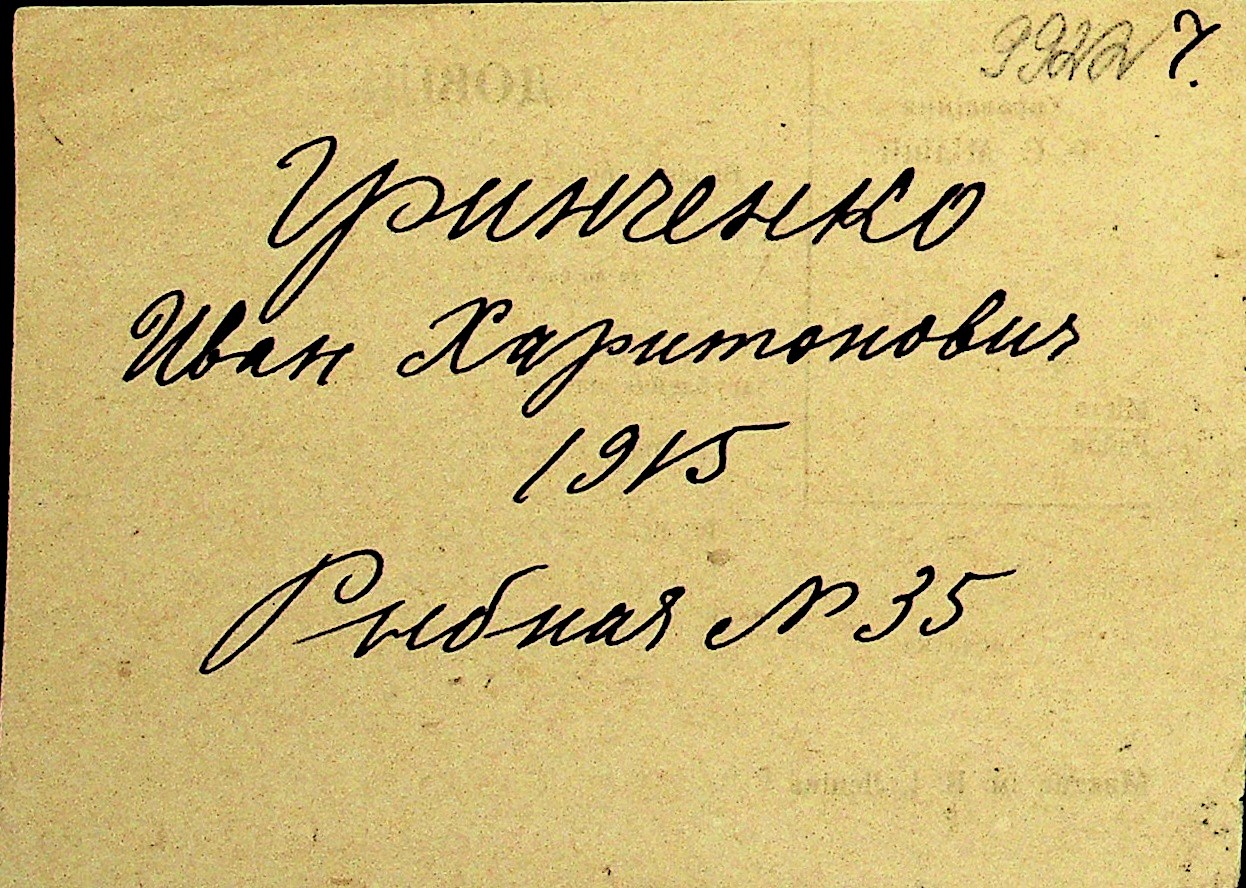 Гринченко
Иван Харитонович
1915
Рыбная № 35